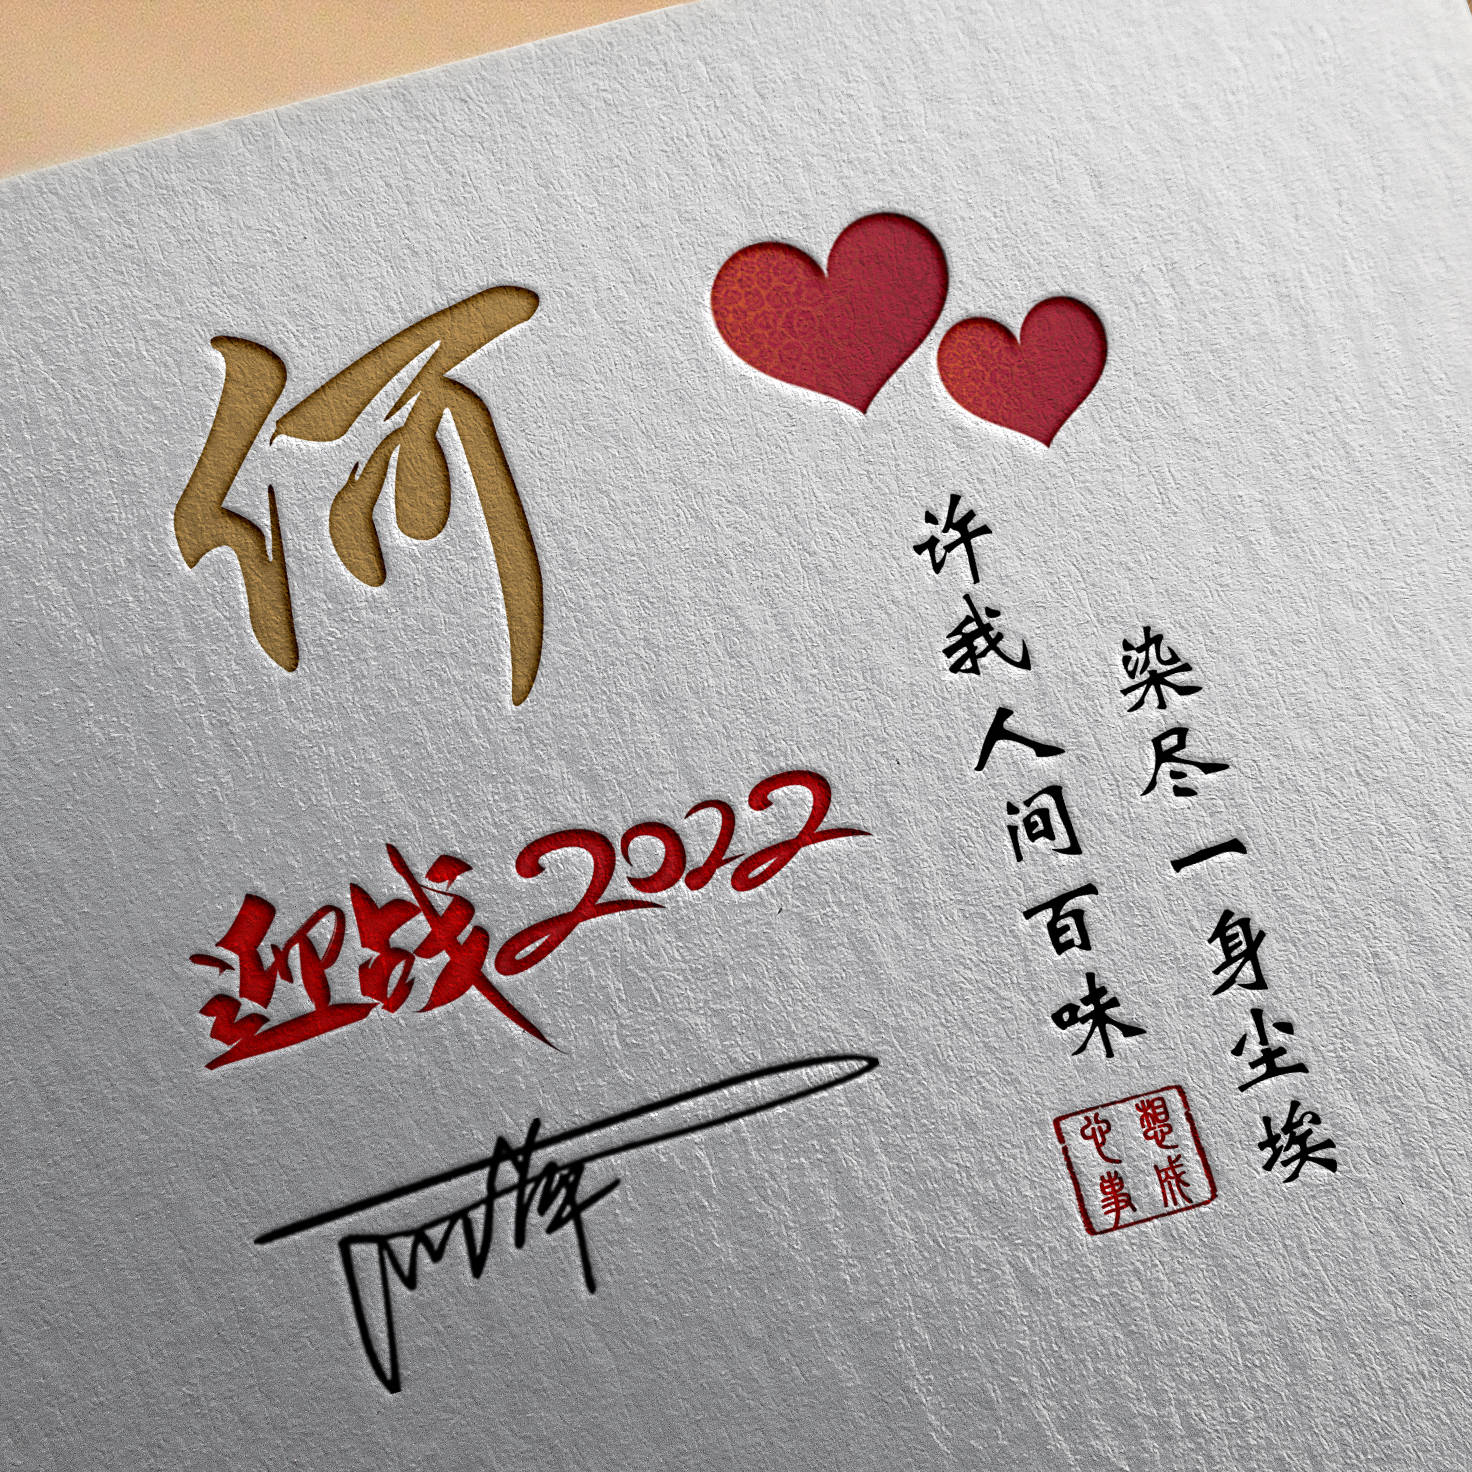 何
迎战2022
许我人间百味
染尽一身尘埃
想成
心事